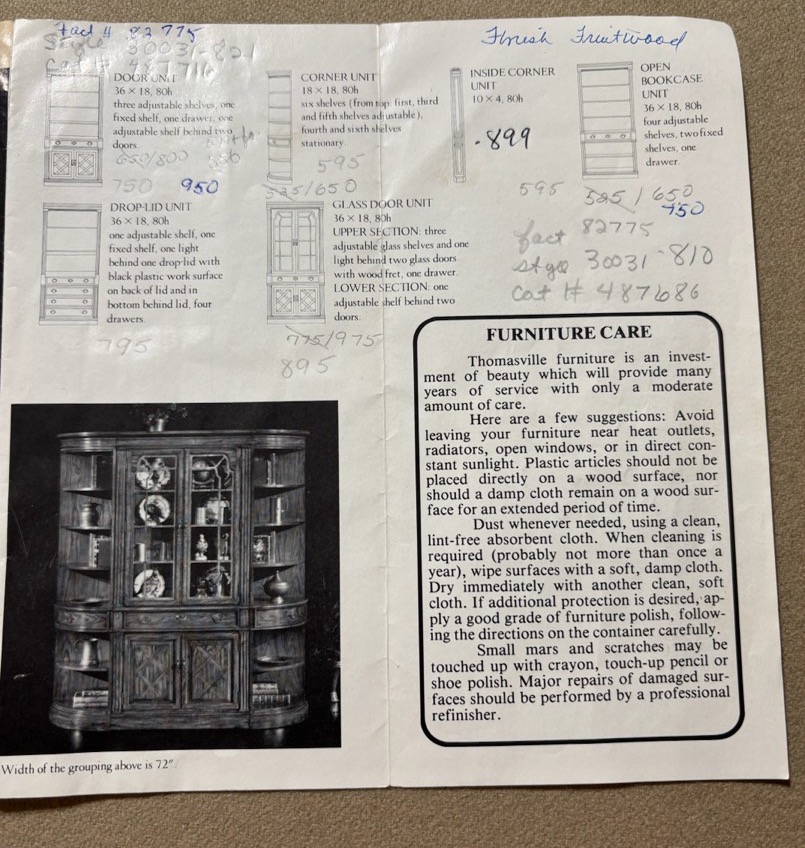 Fact # 82775
Style 30031-821
Cat # 487716
Finish Fruitwood
DOOR UNIT
36 × 18, 80h
three adjustable shelves, one
fixed shelf, one drawer, one
adjustable shelf behind two
doors.
650/800
750 950
CORNER UNIT
18 × 18, 80h
six shelves (from top: first, third
and fifth shelves adjustable),
fourth and sixth shelves
stationary.
595
525/650
INSIDE CORNER
UNIT
10 × 4, 80h
.899
OPEN
BOOKCASE
UNIT
36 × 18, 80h
four adjustable
shelves, two fixed
shelves, one
drawer.
595 525/650
750
fact 82775
style 30031-810
Cat # 487686
DROP-LID UNIT
36 × 18, 80h
one adjustable shelf, one
fixed shelf, one light
behind one drop-lid with
black plastic work surface
on back of lid and in
bottom behind lid, four
drawers.
795
GLASS DOOR UNIT
36 × 18, 80h
UPPER SECTION: three
adjustable glass shelves and one
light behind two glass doors
with wood fret, one drawer.
LOWER SECTION: one
adjustable shelf behind two
doors.
775/975
895
Width of the grouping above is 72".
FURNITURE CARE
Thomasville furniture is an invest-
ment of beauty which will provide many
years of service with only a moderate
amount of care.
Here are a few suggestions: Avoid
leaving your furniture near heat outlets,
radiators, open windows, or in direct con-
stant sunlight. Plastic articles should not be
placed directly on a wood surface, nor
should a damp cloth remain on a wood sur-
face for an extended period of time.
Dust whenever needed, using a clean,
lint-free absorbent cloth. When cleaning is
required (probably not more than once a
year), wipe surfaces with a soft, damp cloth.
Dry immediately with another clean, soft
cloth. If additional protection is desired, ap-
ply a good grade of furniture polish, follow-
ing the directions on the container carefully.
Small mars and scratches may be
touched up with crayon, touch-up pencil or
shoe polish. Major repairs of damaged sur-
faces should be performed by a professional
refinisher.